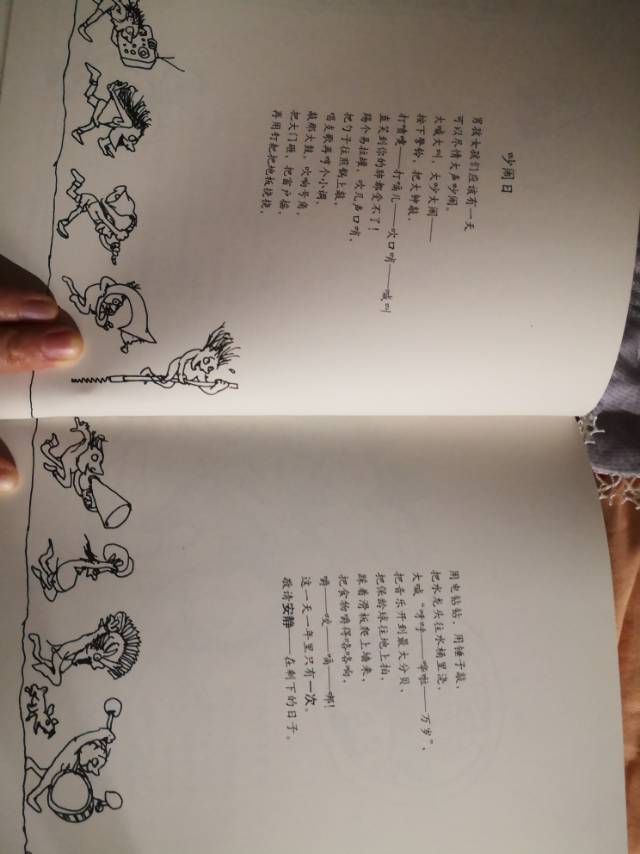 吵闹日
男孩女孩们应该有一天
可以尽情大声吵闹。
大喊大叫，大吵大闹——
按下警铃，把大钟敲，
打喷嚏——打嗝儿——吹口哨——喊叫
直笑到你的肺都受不了！
踢个易拉罐，吹几声口哨，
把勺子往煎锅上敲，
唱支歌再哼个小调，
敲那大鼓，吹响号角，
把大门砸，把窗户摇，
再用钉耙把地板挠挠，
用电钻钻，用锤子敲，
把水龙头往水桶里浇，
大喊“呼呼——哗啦——万岁”，
把音乐开到最大分贝，
把保龄球往地上拍，
踩着滑板爬上墙来，
把食物嚼得咯咯响，
嚼——咬——嗝——哪！
这一天一年里只有一次。
敬请安静——在剩下的日子。